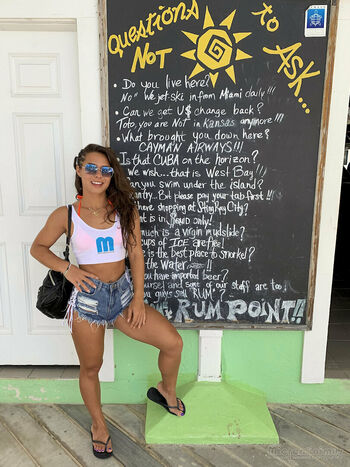 Questions to
Not ASK...
• Do you live here?
"No" We jet ski in from Miami daily!!!
• Can we get U$ change back?
Toto, you are Not in Kansas anymore!!!
• What brought you down here?
CAYMAN AIRWAYS!!!
Is that CUBA on the horizon?
We wish....that is West Bay!!!
you swim under the island?
But please pay your tab first!!
here shopping at Sting Ray City?
is in ISLAND only!
much is a virgin mudslide?
cups of ICE are free!
is the best place to Snorkel?
the WATER
you have imported beer?
and some of our staff are too!
guys sell RUM?
RUM POINT!!
m